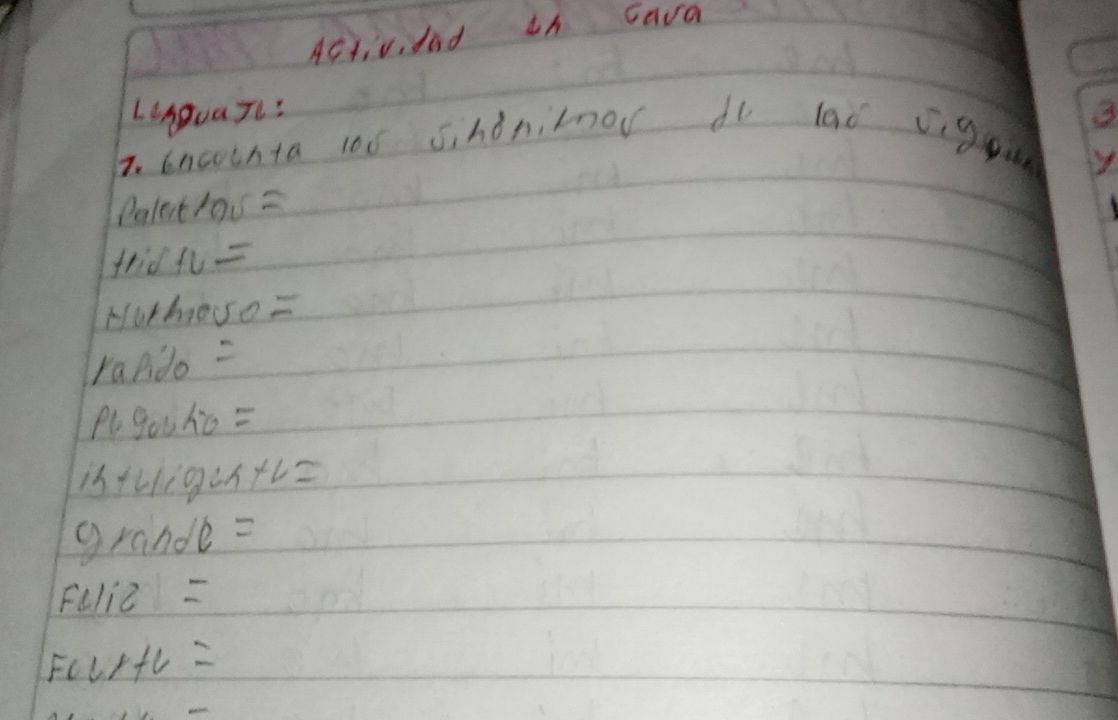 Actividad en casa
Lenguaje:
1. Encuentra los sinónimos de las siguien
Palabras =
triste =
Hermoso =
rapido =
Pequeño =
inteligente =
grande =
Feliz =
Fuerte =